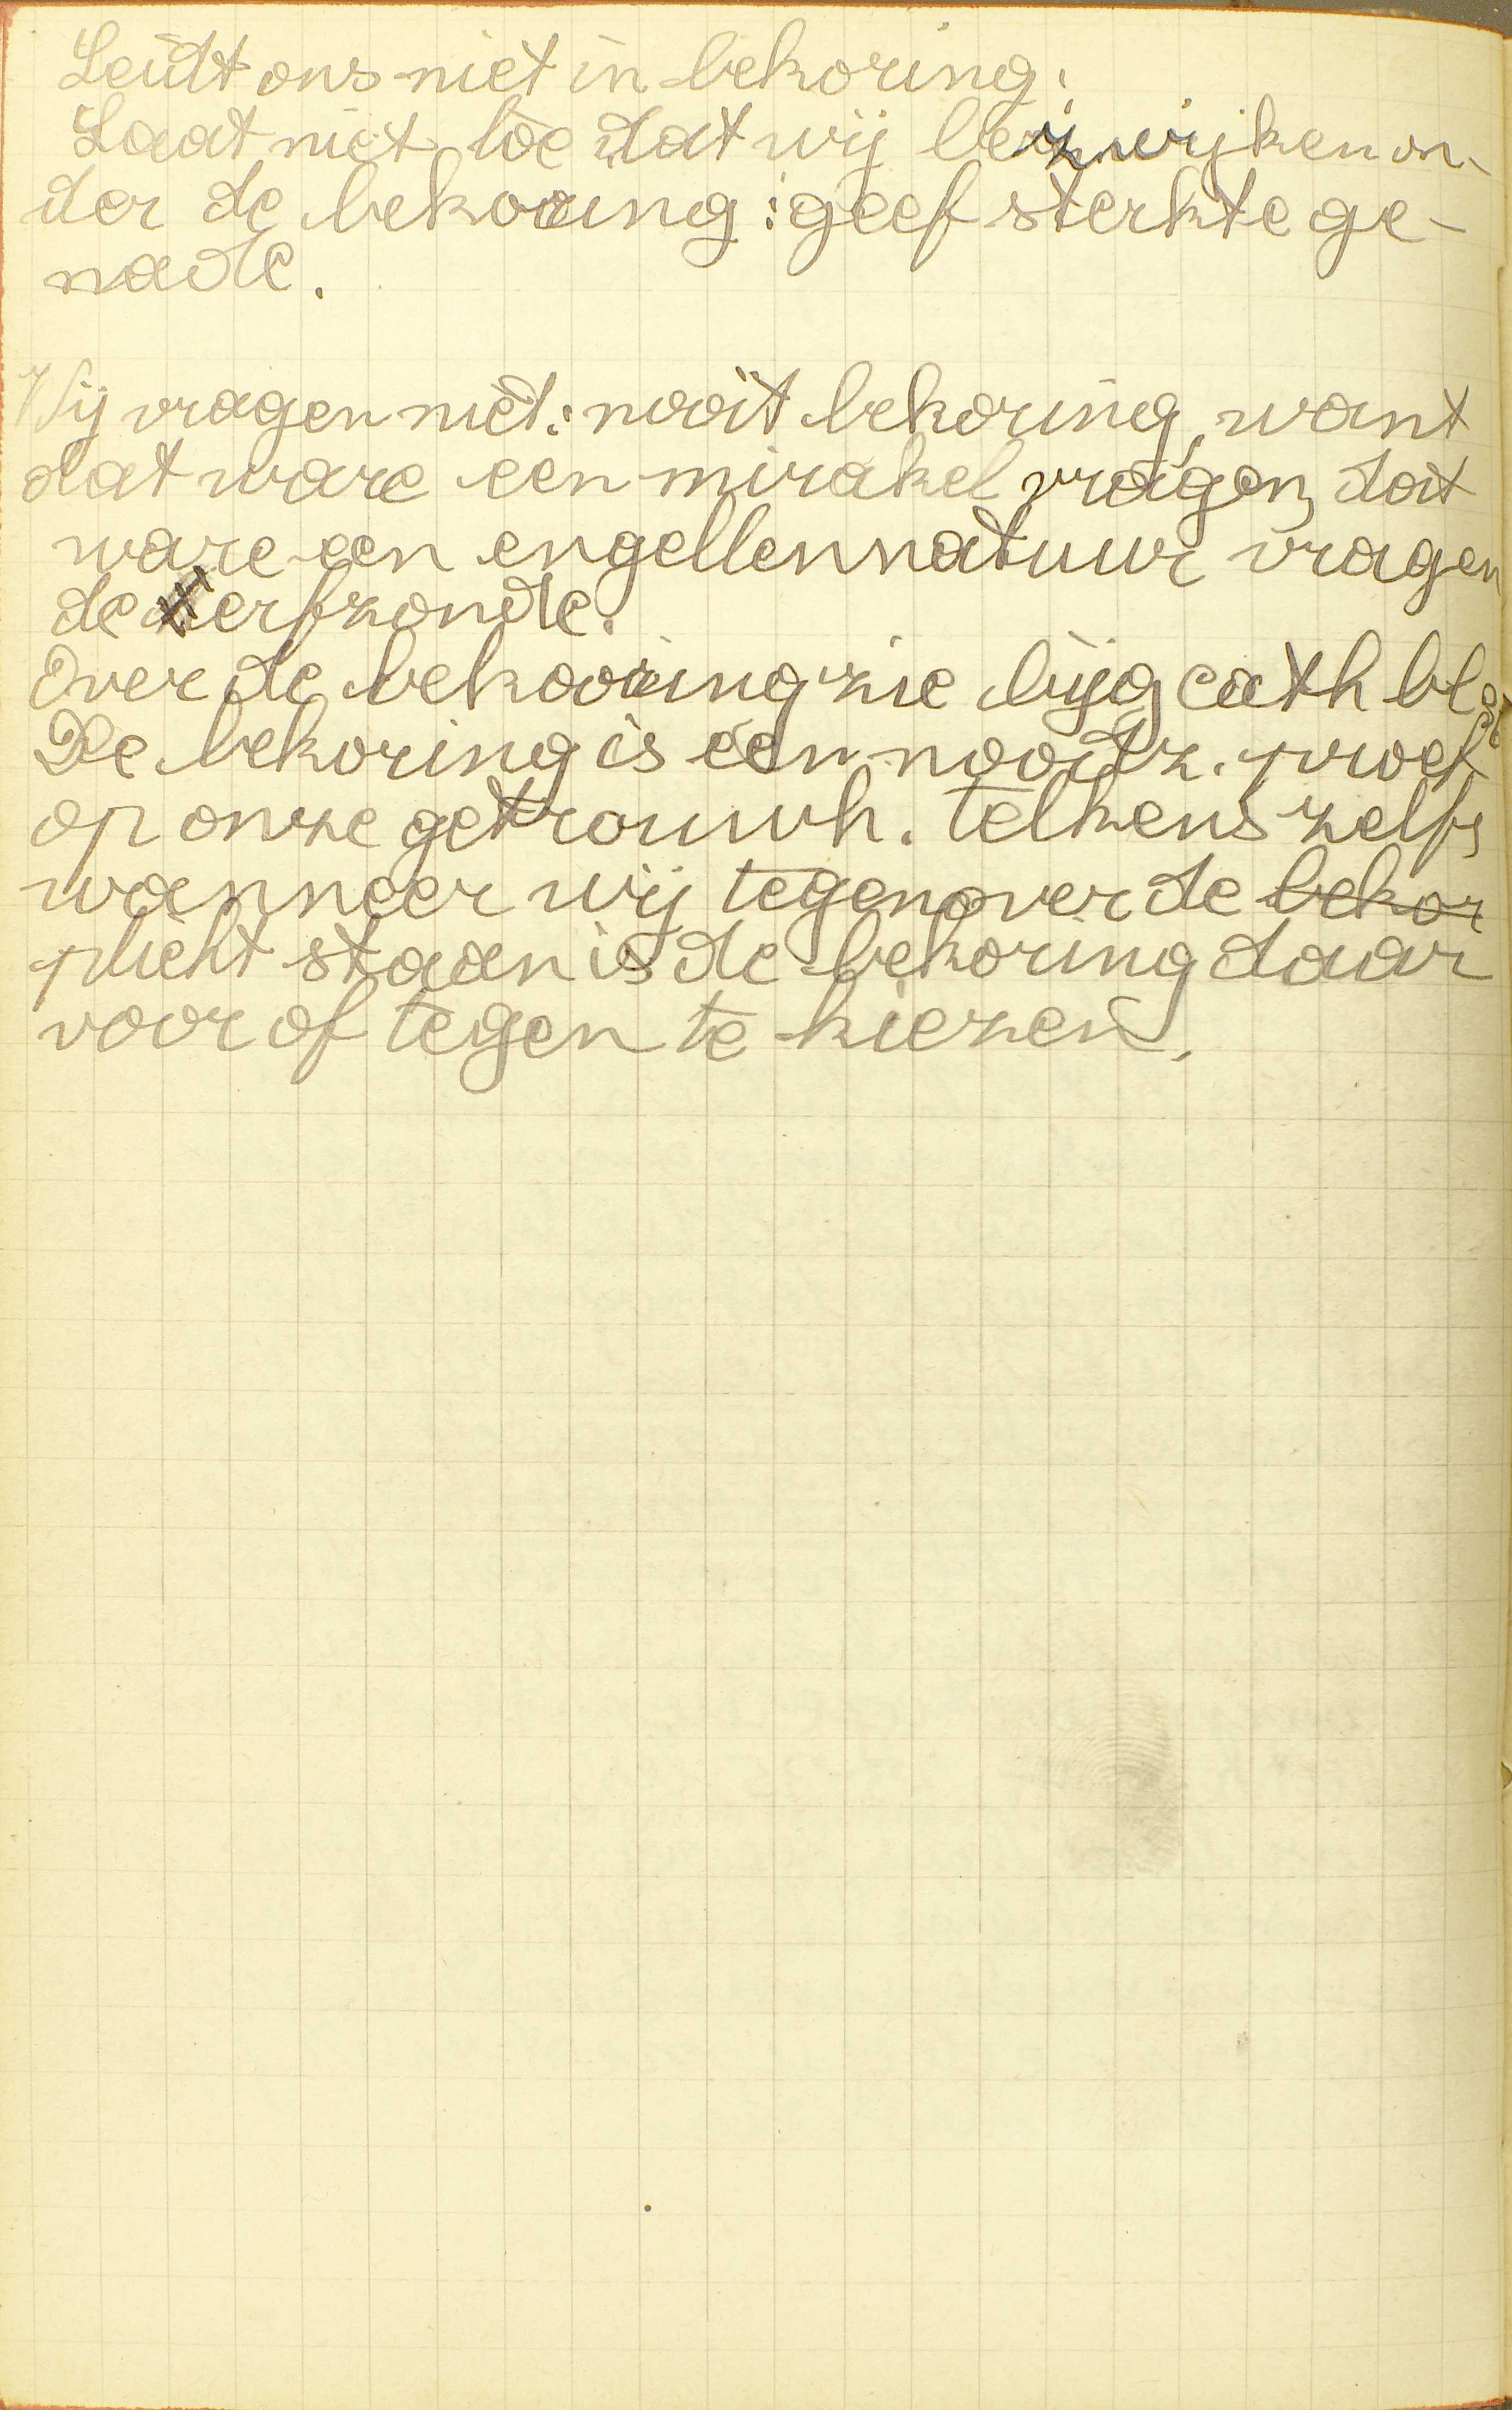 Leidt ons niet in bekoring.
Laat niet toe dat wij bezwijken on-
der de bekooring: geef sterkte ge-
nade.
Wij vragen niet: nooit bekoring, want
dat ware een mirakel vragen, dat
ware een engellennatuur vragen
de erfzonde.
Over de bekooring zie bijg cath bl
De bekoring is een noodz. proef
op onze getrouwh. telkens zelfs
wanneer wij tegenover de bekor
plicht staan is de bekoring daar
voor of tegen te kiezen.